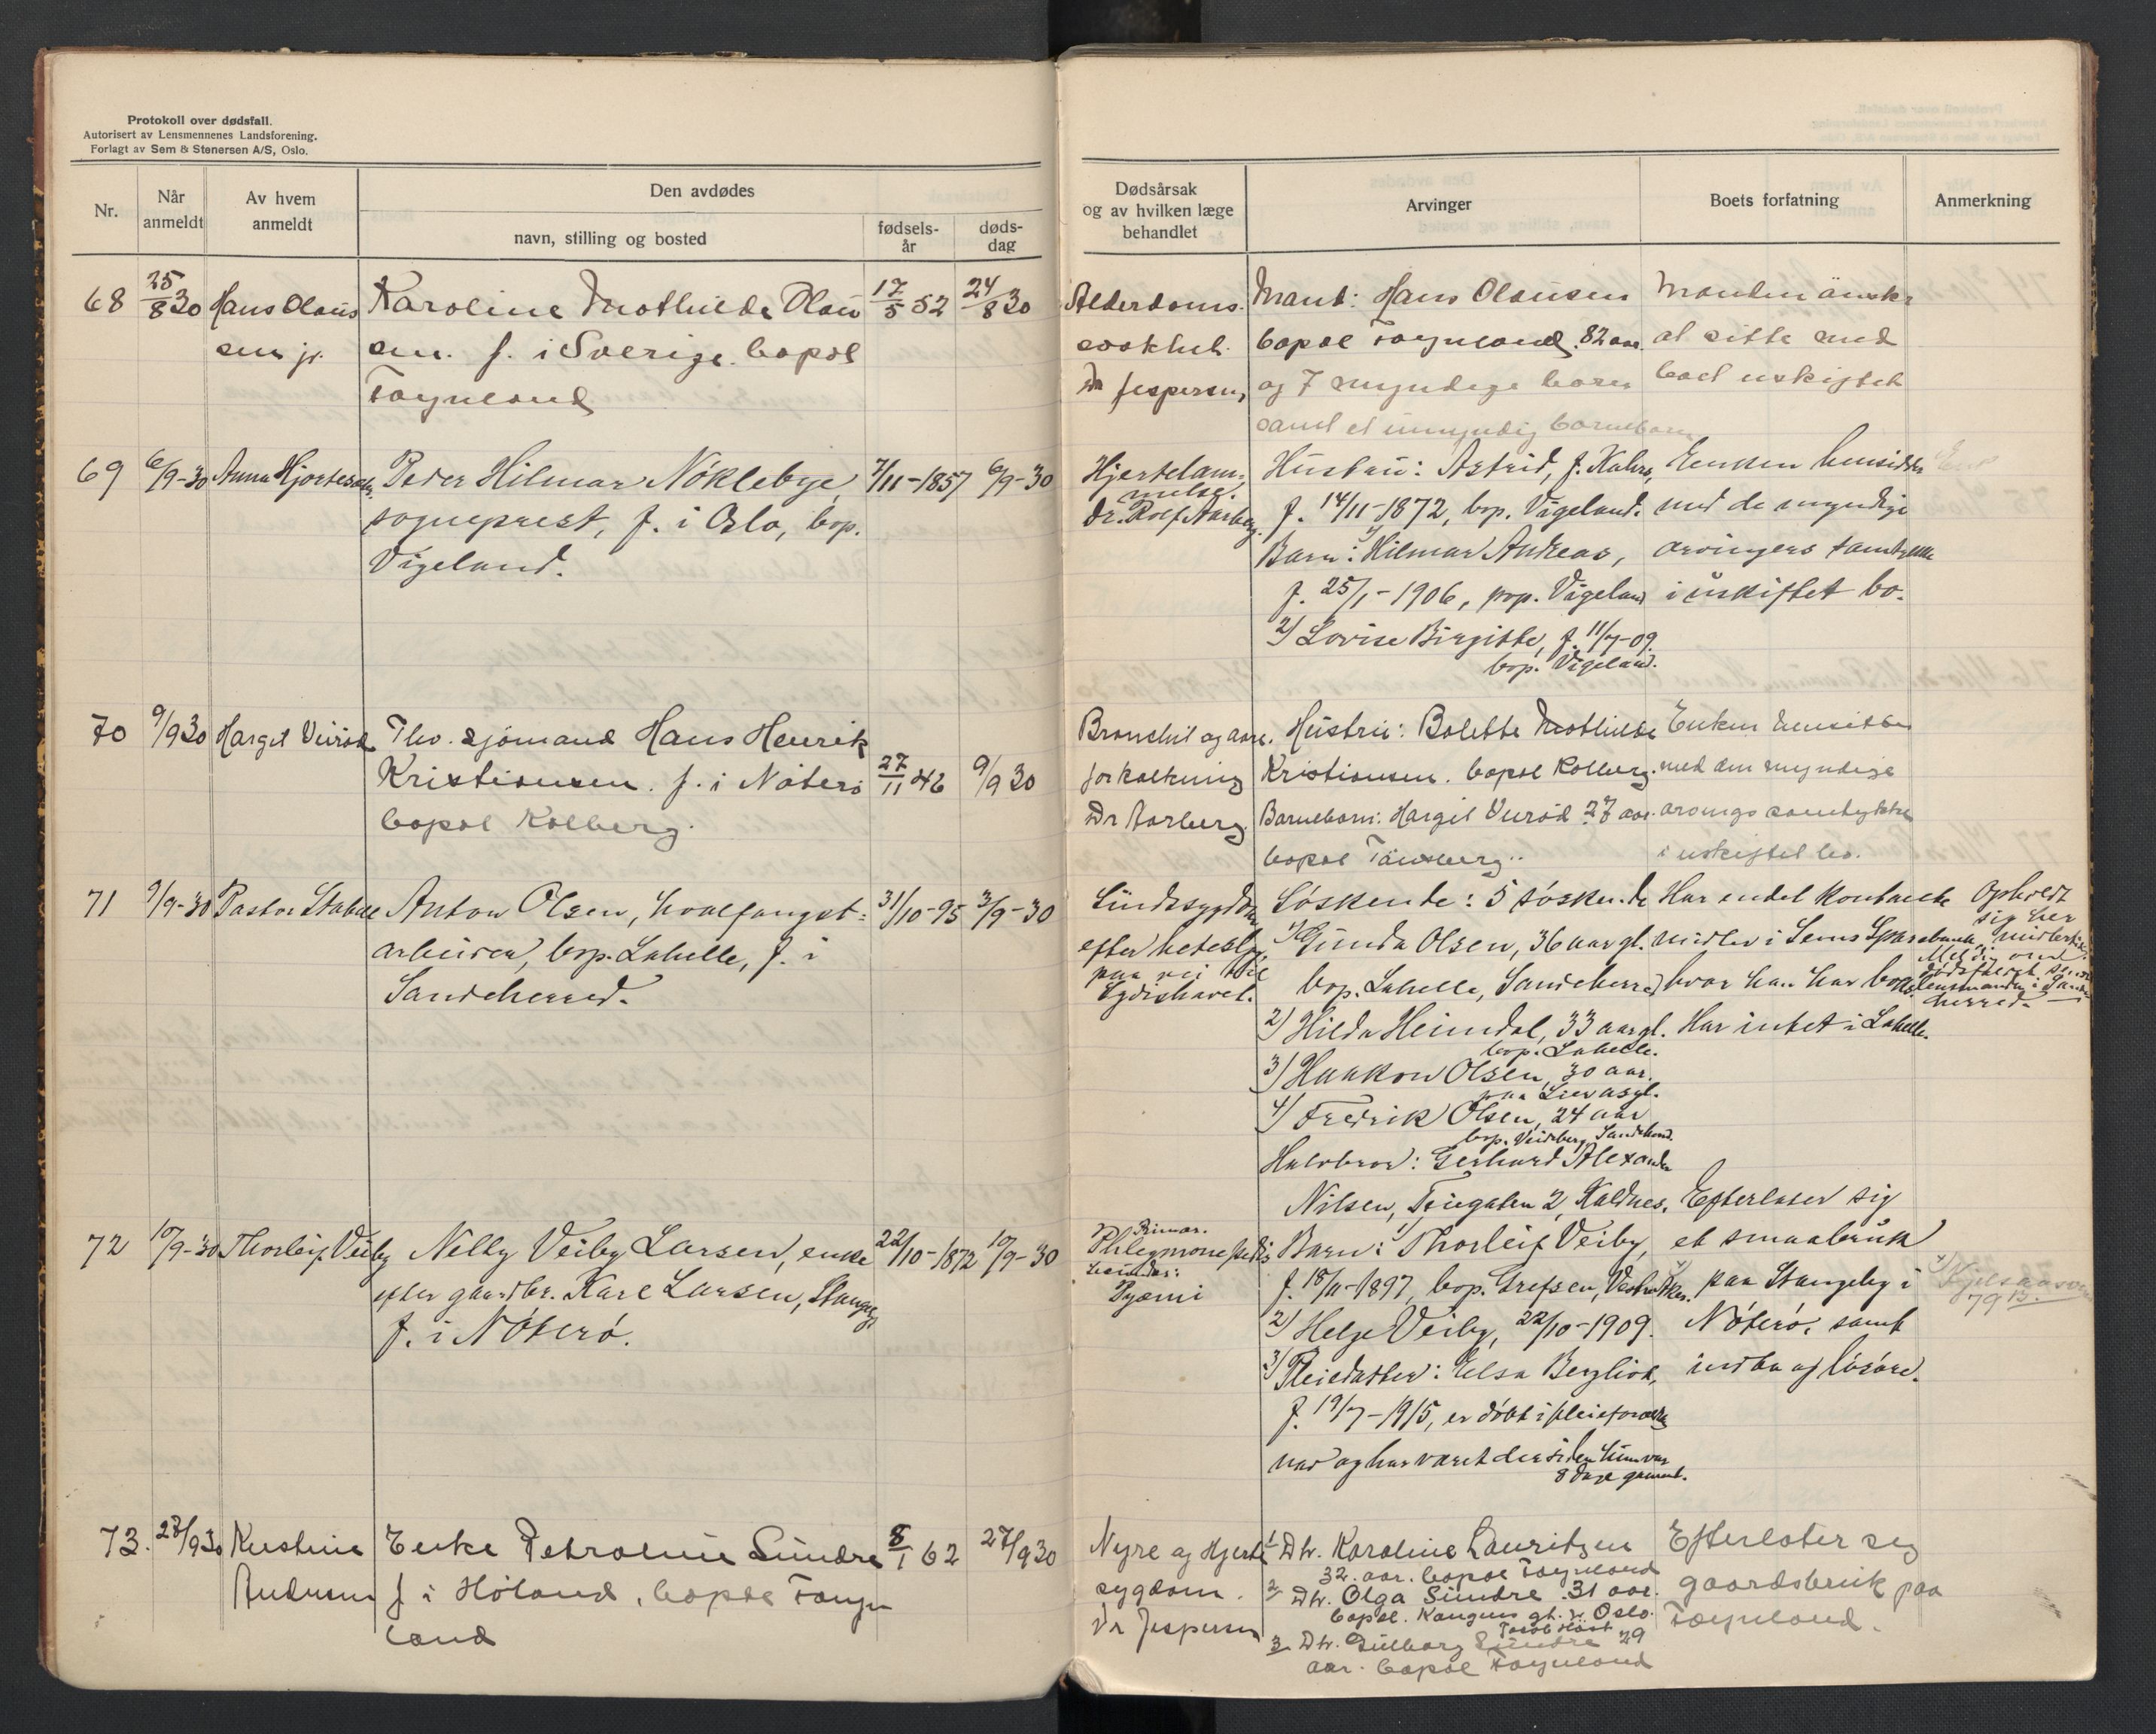 Protokoll over dødsfall.
Autorisert av Lensmennenes Landsforening.
Forlagt av Sem & Stenersen A/S, Oslo.
Nr.
Når
anmeldt
Av hvem
anmeldt
Den avdødes
navn, stilling og bosted
fødsels-
år
døds-
dag
Dødsårsak
og av hvilken læge
behandlet
Arvinger
Boets forfatning
Anmerkning
68
25/8 30
Hans Olaus
sen jr.
Karoline Mathilde Olau
sen. f. i Sverige. bopæl
Føynland
17/5 52
24/8 30
Alderdoms.
svakhet.
Dr Jespersen,
Mand: Hans Olausen
bopæl Føynland. 82 aar.
og 7 myndige barn
samt et umyndig barnebarn
Manden ønsker
at sitte med
boet uskiftet
69
6/9-30
Anna Hjorteseth.
Peder Hilmar Nøklebye,
sogneprest, f. i Oslo, bop.
Vigeland.
7/11-1857
6/9-30
Hjertelam-
melse.
dr. Rolf Aarberg.
Hustru: Astrid, f. Kahrs,
f. 14/11-1872, bop. Vigeland.
Barn: 1) Hilmar Andreas,
f. 25/1-1906, bop. Vigeland
2) Lovise Birgitte, f. 11/7-09.
bop. Vigeland.
Enken hensidder
med de myndige
arvingers samtykke
i uskiftet bo.
70
9/9 30
Margit Virød
Fhv. sjømand Hans Henrik
Kristiansen. f. i Nøterø
bopæl Kolberg.
27/11 46
9/9 30
Bronchit og aare.
forkalkning
Dr Aarberg
Hustru: Bolette Mathilde
Kristiansen. bopæl Kolberg.
Barnebarn: Margit Virød 27 aar.
bopæl Tønsberg..
Enken hensitter
med den myndige
arvings samtykke
i uskiftet bo.
71
9/9-30
Pastor Stabell
Anton Olsen, hvalfangst-
arbeider, bop. Lahelle, f. i
Sandeherred.
31/10-95
3/9-30
Sindssygdom
efter heteslag,
paa vei til
Sydishavet.
Søskende: 5 søskende
1) Gunda Olsen, 36 aar gl.
bop. Lahelle, Sandeherred
2) Hilda Heimdal, 33 aar gl.
bop. Lahelle.
3) Haakon Olsen, 30 aar.
paa Lier asyl.
4) Fredrik Olsen, 24 aar
bop. Veidsberg, Sandeherred.
Halvbror: Gerhard Alexander
Nilsen, Tinegaten 2, Kaldnes.
Har endel kontante
midler i Sems Sparebank,
hvor han har bopæl.
Har intet i Lahelle.
Opholdt
sig her
midlertid.
Meldt om
dødsfaldet sendt
lensmanden i Sande
herred.
72
10/9-30
Thorleif Veiby
Nelly Veiby Larsen, enke
efter gaardbr. Karl Larsen, Stangeby
f. i Nøterø.
22/10-1872
10/9-30
Primær.
Phlegmone pedis
Sekundær:
Pyæmi
Barn: 1) Thorleif Veiby,
f. 18/11-1897, bop. Grefsen, Vestre Aker.
2) Helge Veiby, 22/10-1909.
3) Pleiedatter: Elsa Bergliot,
f. 19/7-1915, er døbt i pleieforældrenes
navn og har været der siden hun var
8 dage gammel.
Efterlater sig
et smaabruk
paa Stangeby i
Nøterø, samt
indbo og løsøre.
Kjelsaasvn
79 B.
73.
28/9 30
Kirstine
Andersen
Enke Petroline Sundre
f i Høland, bopæl Føyn
land
8/1 62
27/9 30
Nyre og Hjerte
sygdom.
Dr Jespersen
1 Dtr. Karoline Lauritzen
32. aar. bopæl Føynland
2 Dtr. Olga Sundre 31 aar.
bopæl. Kongens gt. Oslo.
3 Dtr. Gulborg Sundre 29
aar. bopæl Føynland
Efterlater sig
gaardsbruk paa
Føynland.